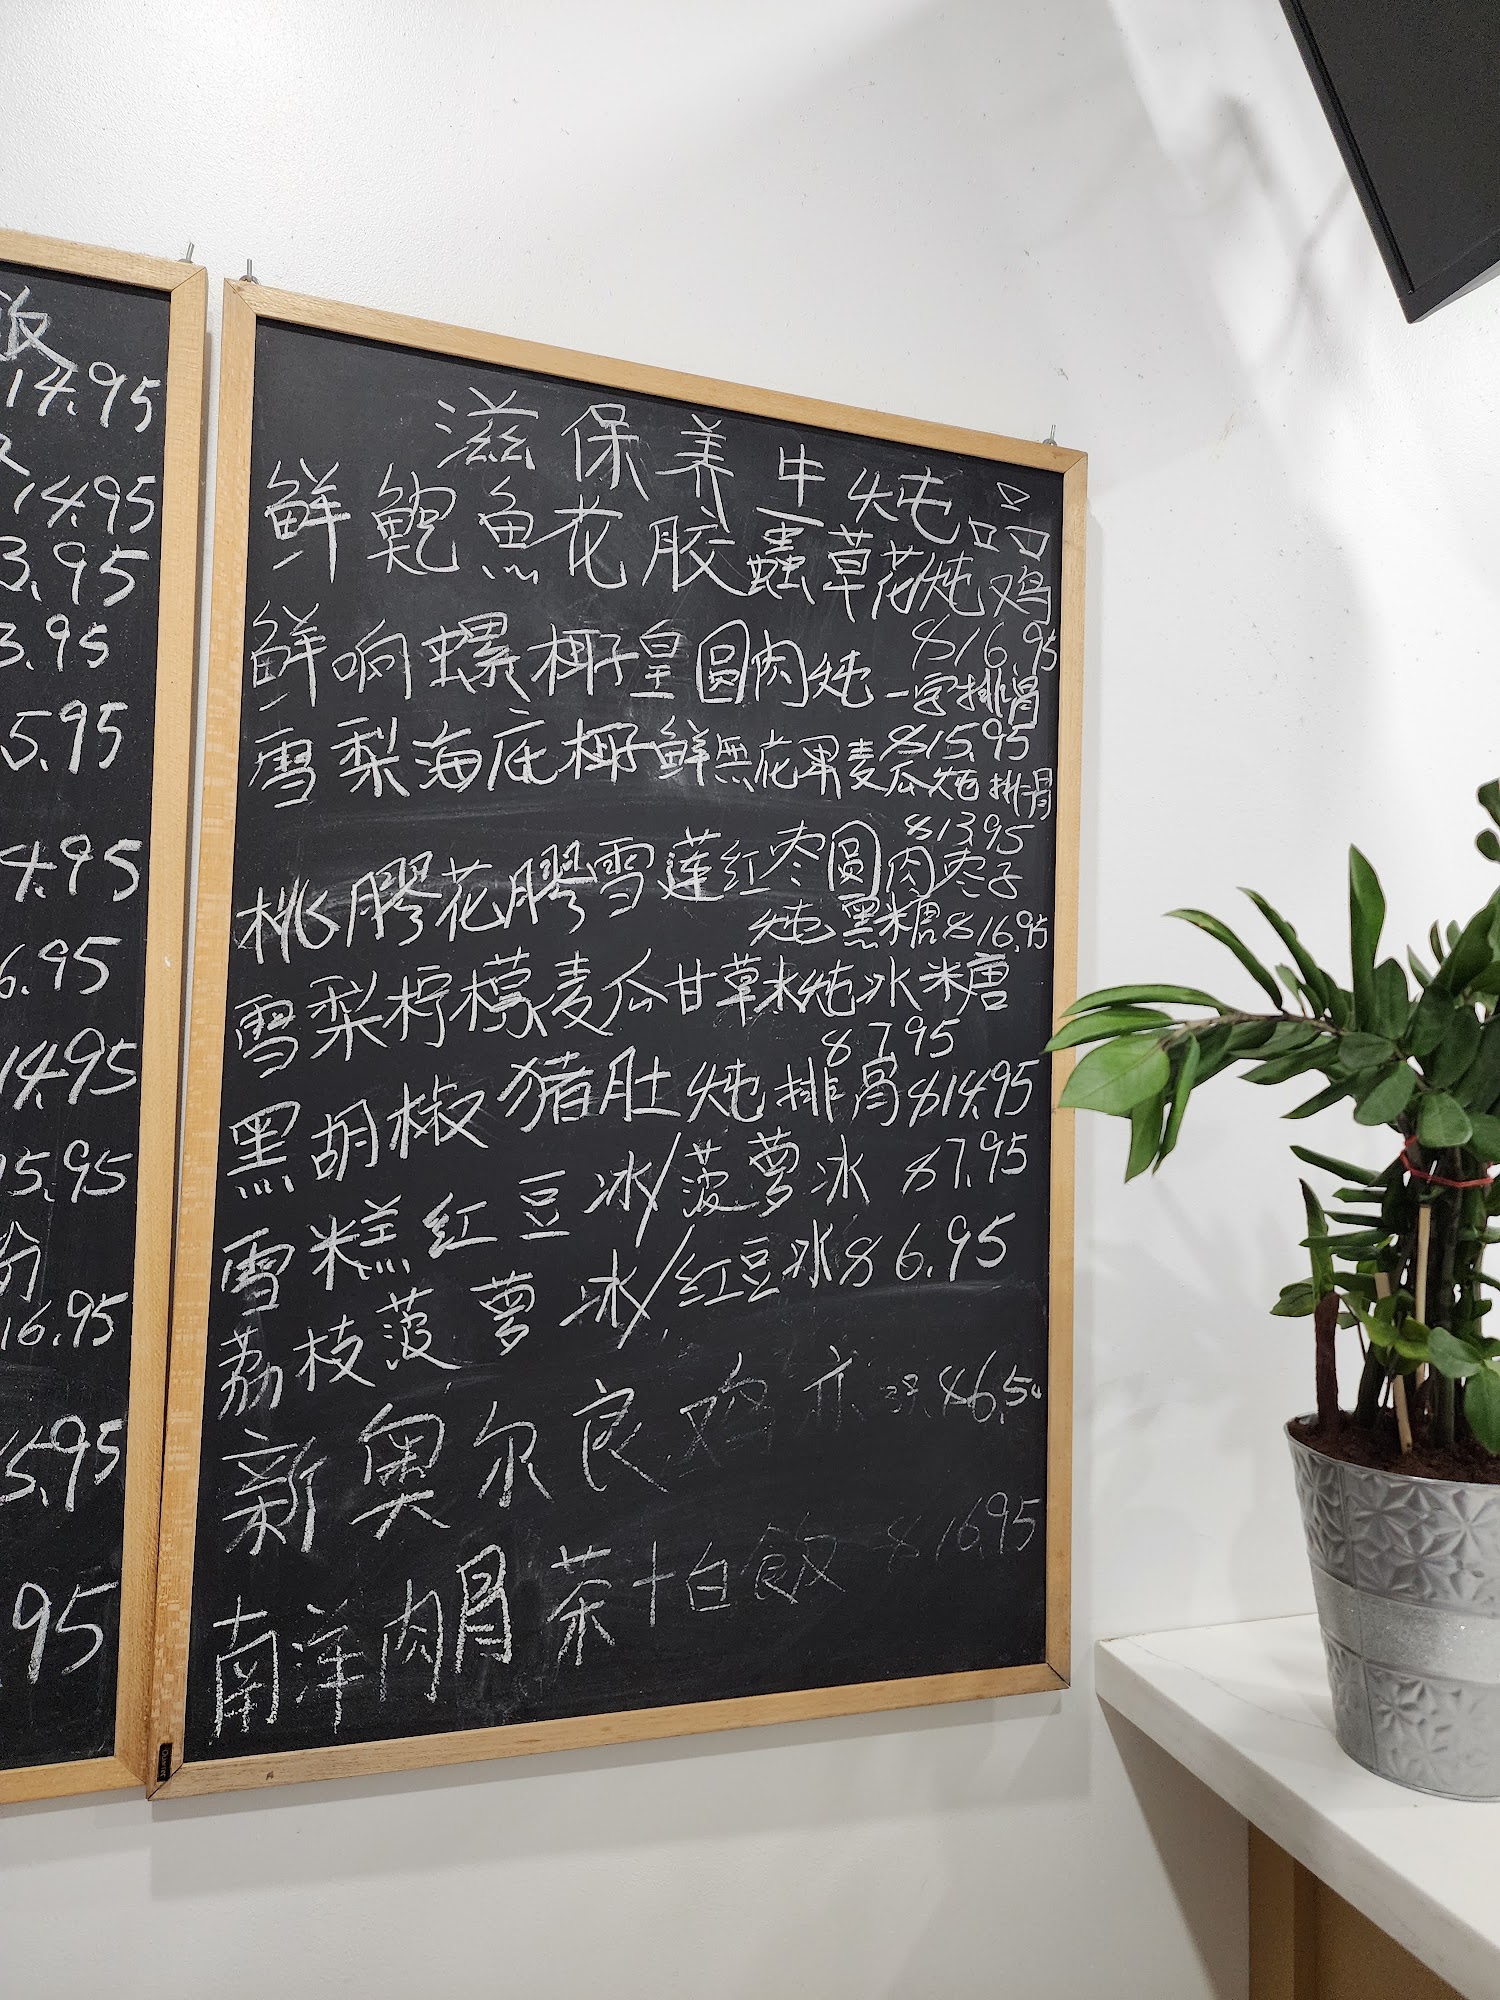 饭
14.95
14.95
3.95
3.95
5.95
4.95
6.95
14.95
15.95
份
16.95
15.95
.95
滋保养生炖品
鲜鲍魚花胶蟲草花炖鸡
$16.95
鲜响螺椰子皇圆肉炖一字排骨
$15.95
雪梨海底椰鲜無花果麦瓜炖排骨
$13.95
桃膠花膠雪莲红枣圆肉枣子
炖黑糖$16.95
雪梨柠檬麦瓜甘草水炖冰糖
$7.95
黑胡椒猪肚炖排骨$14.95
雪糕红豆冰/菠萝冰 $7.95
荔枝菠萝冰/红豆冰$6.95
新奥尔良鸡 $6.50
南洋肉骨茶+白飯 $16.95